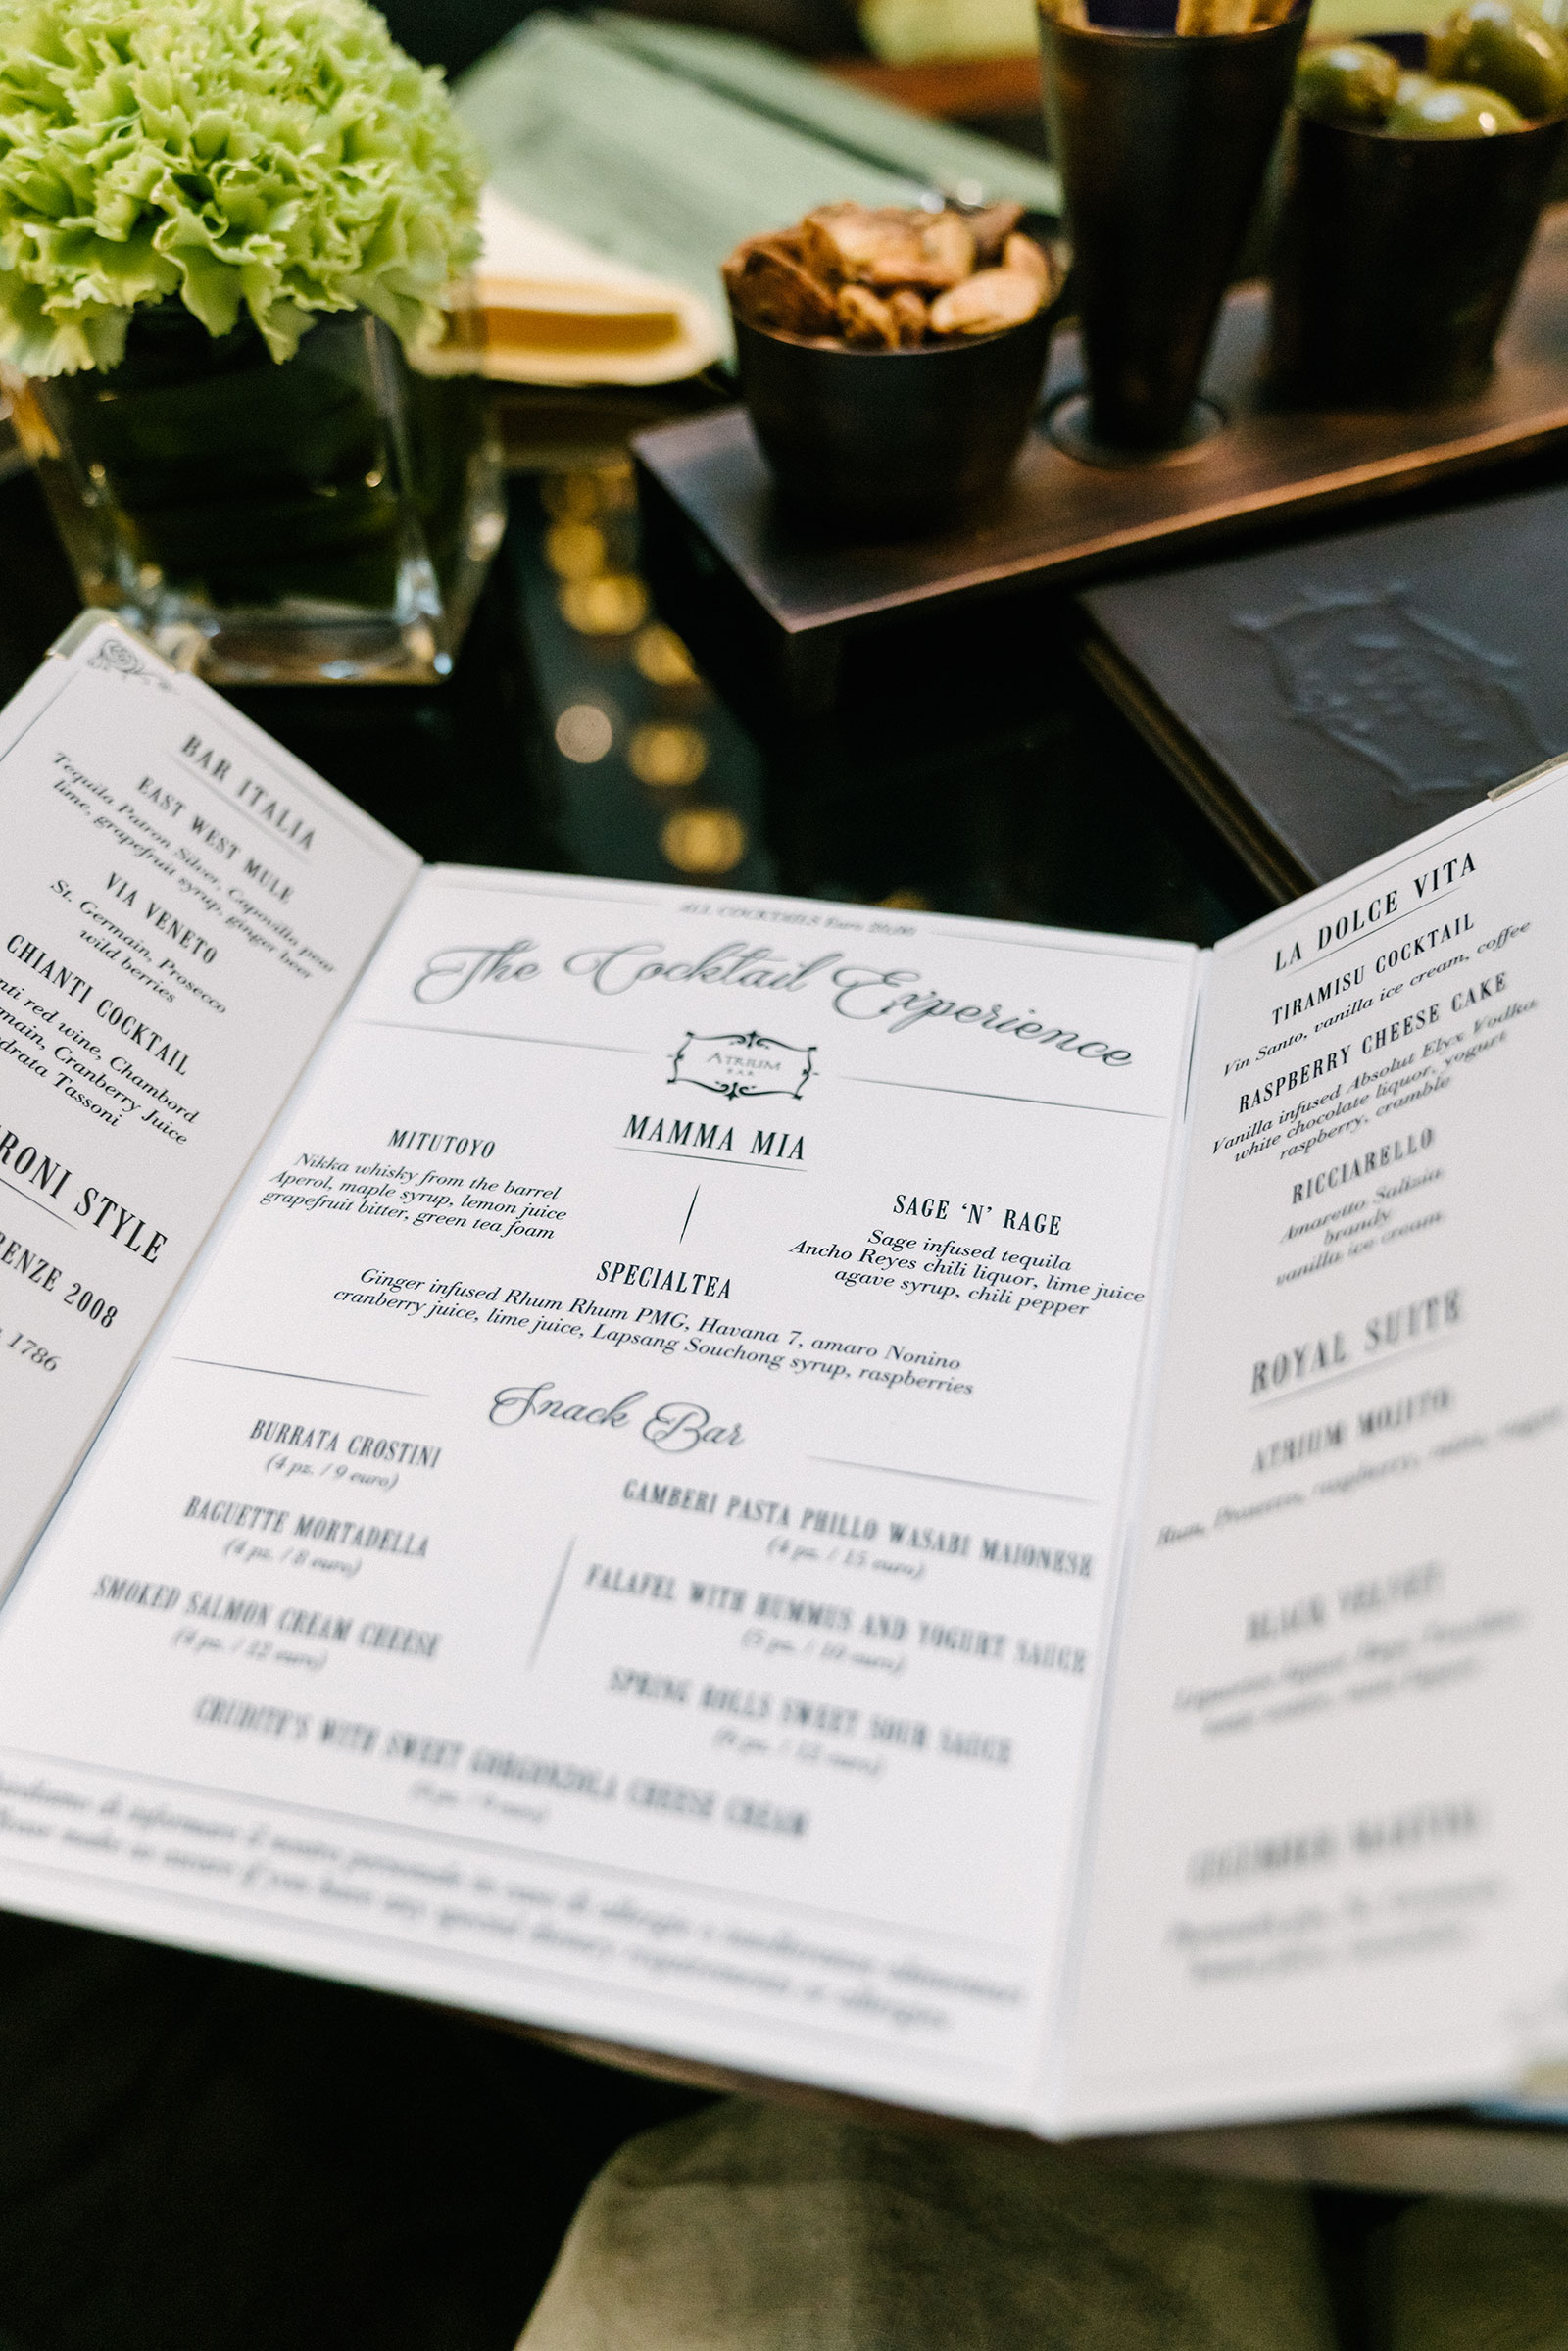 BAR ITALIA
EAST WEST MULE
Tequila Patron Silver, Capovilla pear
lime, grapefruit syrup, ginger beer
VIA VENETO
St. Germain, Prosecco
wild berries
CHIANTI COCKTAIL
nti red wine, Chambord
main, Cranberry Juice
drata Tassoni
RONI STYLE
RENZE 2008
1786
ALL COCKTAILS Euro 20,00
The Cocktail Experience
ATRIUM
BAR
MAMMA MIA
MITUTOYO
Nikka whisky from the barrel
Aperol, maple syrup, lemon juice
grapefruit bitter, green tea foam
SAGE ‘N’ RAGE
Sage infused tequila
Ancho Reyes chili liquor, lime juice
agave syrup, chili pepper
SPECIALTEA
Ginger infused Rhum Rhum PMG, Havana 7, amaro Nonino
cranberry juice, lime juice, Lapsang Souchong syrup, raspberries
Snack Bar
BURRATA CROSTINI
(4 pz. / 9 euro)
BAGUETTE MORTADELLA
(4 pz. / 8 euro)
SMOKED SALMON CREAM CHEESE
(4 pz. / 12 euro)
GAMBERI PASTA PHILLO WASABI MAIONESE
(4 pz. / 15 euro)
FALAFEL WITH HUMMUS AND YOGURT SAUCE
(5 pz. / 10 euro)
SPRING ROLLS SWEET SOUR SAUCE
(6 pz. / 12 euro)
CRUDITE'S WITH SWEET GORGONZOLA CHEESE CREAM
di informare il nostro personale in caso di allergie e intolleranze alimentari
Please make us aware if you have any special dietary requirements or allergies
LA DOLCE VITA
TIRAMISU COCKTAIL
Vin Santo, vanilla ice cream, coffee
RASPBERRY CHEESE CAKE
Vanilla infused Absolut Elyx Vodka
white chocolate liquor, yogurt
raspberry, cramble
RICCIARELLO
Amaretto Salizia
brandy
vanilla ice cream
ROYAL SUITE
ATRIUM MOJITO
Rum, Prosecco, raspberry,
BLACK VELVET